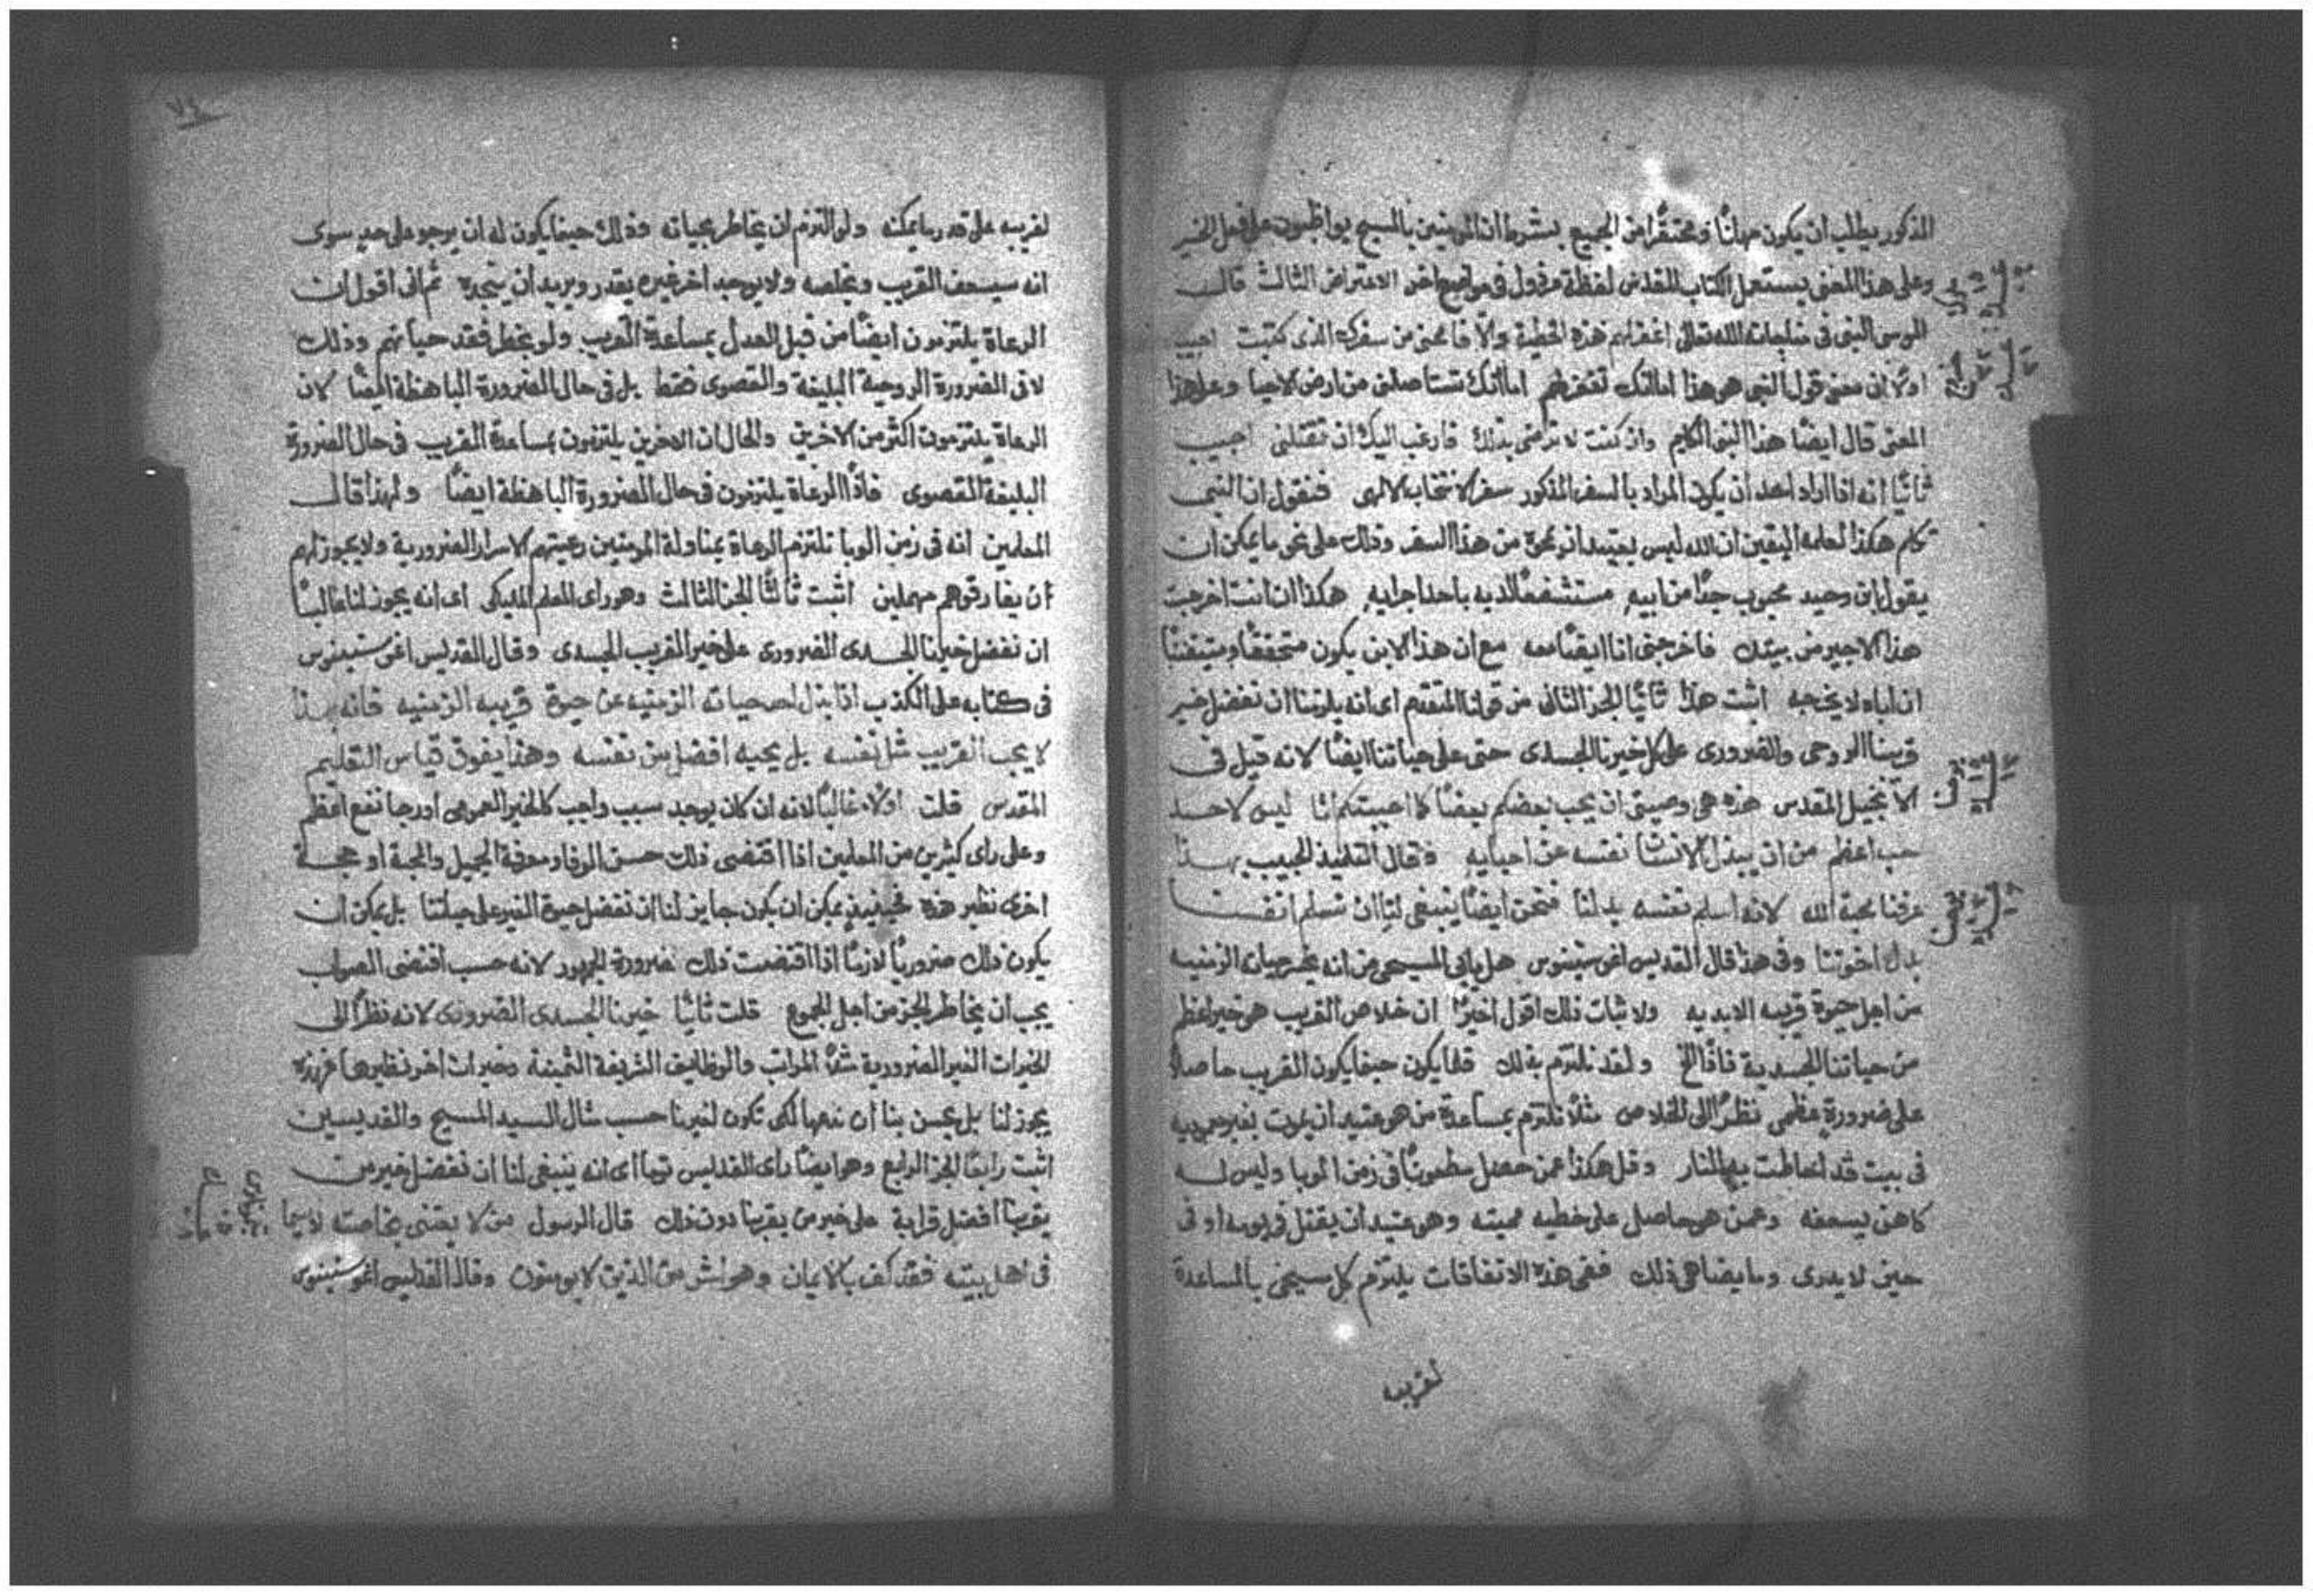 المذكور يطلب ان يكون مهانًا ومحتقرًا من الجميع بشرط ان المومنين بالمسيح يواظبون على فعل الخير
وعلى هذا المعنى يستعمل الكتاب المقدس لفظة مرذول في مواضع اخر الاعتراض الثالث قال
موسى النبي في مناجاته الله تعالى اغفر لهم هذه الخطية والّا فامحني من سفرك الذي كتبت اجيب
اولًا ان معنى قول النبي هو هذا اما انك تغفر لهم اما انك تستاصلني من ارض الاحيا وعلى هذا
المعنى قال ايضًا هذا النبي الكليم وان كنت لا ترضى بذلك فارغب اليك ان تقتلني اجيب
ثانيًا انه اذا اراد احد ان يكون المراد بالسفر المذكور سفر الانتخاب الالهي فنقول ان النبي
تكلم هكذا لعلمه اليقين ان الله ليس بعتيد ان يمحيَ من هذا السفر وذلك على نحو ما يمكن ان
يقول ابن وحيد محبوب جدًا من ابيه مستشفعًا لديه باحد اجرايه هكذا ان انت اخرجت
هذا الاجير من بيتك فاخرجني انا ايضًا معه مع ان هذا الابن يكون متحققًا ومتيقنًا
ان اباه لا يخرجه اثبت هذا ثانيًا الجز الثاني من قولنا المتقدم اي انه يلزمنا ان نفضل خير
قريبنا الروحي والضروري على كل خيرنا الجسدي حتى على حياتنا ايضًا لانه قيل في
الانجيل المقدس هذه هي وصيتي ان يحب بعضكم بعضًا كما احببتكم انا ليس لاحد
حب اعظم من ان يبذل الانسان نفسه عن احبايه وقال التلميذ الحبيب بهذا
عرفنا محبة الله لانه اسلم نفسه بدلنا فنحن ايضًا ينبغي لنا ان نسلم انفسنا
بدل اخوتنا وفي هذا قال القديس اغوستينوس هل يابى المسيحي من انه يخسر حياته الزمنيه
من اجل حيوة قريبه الابديه ولاثبات ذلك اقول اخيرًا ان خلاص القريب هو خير اعظم
من حياتنا الجسدية فاذًا الخ ولقد نلتزم بذلك قلما يكون حينما يكون القريب حاصلًا
على ضرورة عظمى نظرًا الى الخلاص مثلًا نلتزم بمساعدة من هو عتيد ان يموت بغير معموديه
في بيت قد احاطت به النار وقل هكذا عمن حصل مطعونًا في زمن الوبا وليس له
كاهن يسعفه وعمن هو حاصل على خطيه مميته وهو عتيد ان يقتل في نومه او في
حين لا يدري وما يضاهي ذلك ففي هذه الاتفاقات يلتزم كل مسيحي بالمساعدة
لقريبه
٧٤
لقريبه على قدر ما يمكنه ولو التزم ان يخاطر بحياته وذلك حينما يكون له ان يرجو على حد سوى
انه سيسعف القريب ويخلصه ولا يوجد اخر غيره يقدر ويريد ان ينجده ثم اني اقول ان
الرعاة يلتزمون ايضًا من قبل العدل بمساعدة القريب ولو بخطر فقد حياتهم وذلك
لا في الضرورة الروحية البليغة والقصوى فقط بل في حال الضرورة الباهظة ايضًا لان
الرعاة يلتزمون اكثر من الاخرين والحال ان الاخرين يلتزمون بمساعدة القريب في حال الضرورة
البليغة القصوى فاذًا الرعاة يلتزمون في حال الضرورة الباهظة ايضًا ولهذا قال
المعلمين انه في زمن الوبا تلتزم الرعاة بمناولة المومنين رعيتهم الاسرار الضرورية ولا يجوز لهم
ان يفارقوهم مهملين اثبت ثالثًا الجز الثالث وهو راى المعلم الملايكي اي انه يجوز لنا غالبًا
ان نفضل خيرنا الجسدي الضروري على خير القريب الجسدي وقال القديس اغوستينوس
في كتابه على الكذب اذا بذل احد حياته الزمنيه عن حيوة قريبه الزمنيه فانه بهذا
لا يحب القريب مثل نفسه بل يحبه افضل من نفسه وهذا يفوق قياس التعليم
المقدس قلت اولًا غالبًا لانه ان كان يوجد سبب واجب كالخير العمومي او رجا نفع اعظم
وعلى راى كثيرين من المعلمين اذا اقتضى ذلك حسن الوفا ومعرفة الجميل والمحبة او حجة
اخرى نظير هذه فحينيذ يمكن ان يكون جايز لنا ان نفضل حيوة الغير على حياتنا بل يمكن ان
يكون ذلك ضروريًا لازمًا اذا اقتضت ذلك ضرورة الجمهور لانه حسب اقتضى الصواب
يجب ان يخاطر الجز من اجل المجموع قلت ثانيًا خيرنا الجسدي الضروري لانه نظرًا الى
الخيرات الغير الضرورية مثلًا المراتب والوظايف الشريفة الثمينة وخيرات اخر نظيرها فهذه
يجوز لنا بل يحسن بنا ان نهبها لكي تكون لغيرنا حسب مثال السيد المسيح والقديسين
اثبت رابعًا الجز الرابع وهو ايضًا راى القديس توما اي انه ينبغي لنا ان نفضل خير من
يقربنا افضل قرابة على خير من يقربنا دون ذلك قال الرسول من لا يعتني بخاصته لا سيما
في اهل بيته فقد كفر بالايمان وهو اشر من الذين لا يومنون وقال القديس اغوستينوس